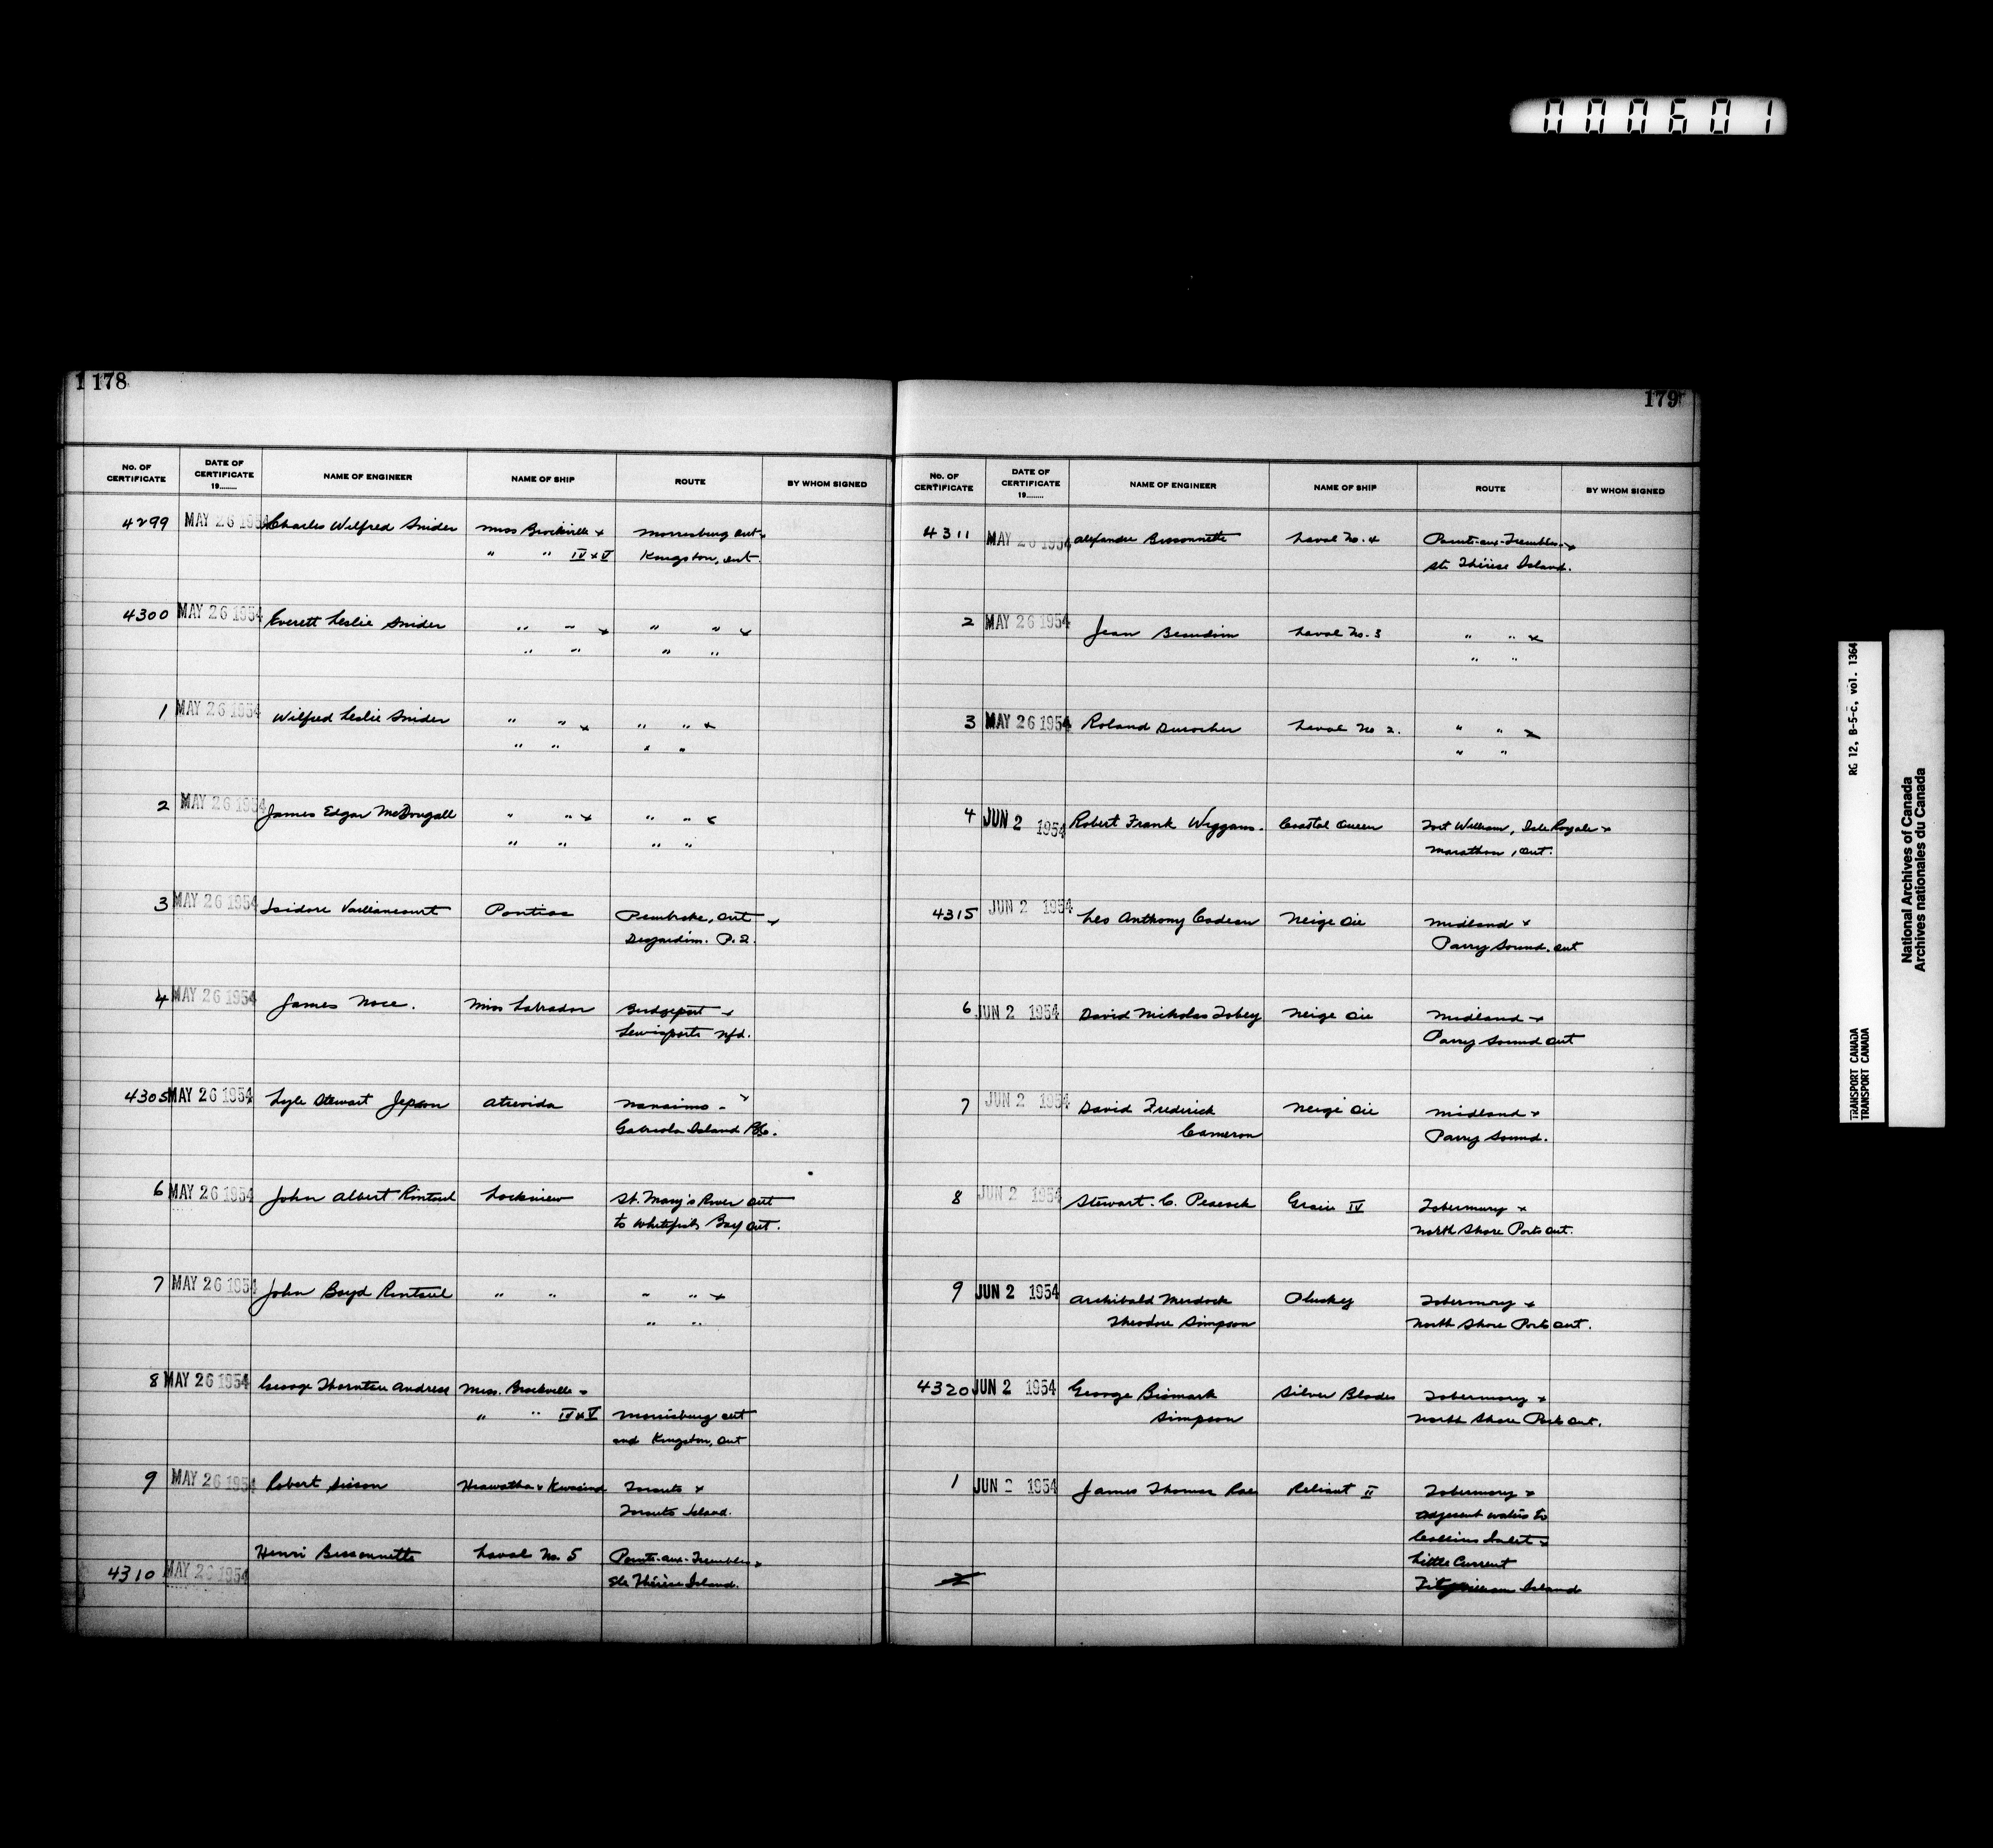 000601
1 178
No. OF CERTIFICATE DATE OF CERTIFICATE 19........ NAME OF ENGINEER NAME OF SHIP ROUTE BY WHOM SIGNED
4299 MAY 26 1954 Charles Wilfred Snider Miss Brockville & Morrisburg Ont &
" " IV & V Kingston, Ont.
4300 MAY 26 1954 Everett Leslie Snider " " & " " &
" " " "
1 MAY 26 1954 Wilfred Leslie Snider " " & " " &
" " " "
2 MAY 26 1954 James Edgar McDougall " " & " " &
" " " "
3 MAY 26 1954 Isidore Vaillancourt Pontiac Pembroke, Ont &
Desjardins. P.Q.
4 MAY 26 1954 James Noce. Miss Labrador Bridgeport &
Lewisporte Nfd.
4305 MAY 26 1954 Lyle Stewart Jepson Atrevida Nanaimo - &
Gabriola Island B.C.
6 MAY 26 1954 John Albert Rintoul Lockview St. Mary's River Ont
to Whitefish Bay Ont.
7 MAY 26 1954 John Boyd Rintoul " " " " &
" "
8 MAY 26 1954 George Thornton Andress Miss. Brockville &
" " IV & V Morrisburg Ont
and Kingston, Ont
9 MAY 26 1954 Robert Sisson Hiawatha & Kwasind Toronto &
Toronto Island.
Henri Bissonnette Laval No. 5 Pointe-aux-Trembles &
4310 MAY 26 1954 Ste Thérèse Island.
179
No. OF CERTIFICATE DATE OF CERTIFICATE 19........ NAME OF ENGINEER NAME OF SHIP ROUTE BY WHOM SIGNED
4311 MAY 26 1954 Alexandre Bissonnette Laval No. 4 Pointe-aux-Trembles &
St. Thérèse Island.
2 MAY 26 1954 Jean Beaudoin Laval No. 3 " " &
" "
3 MAY 26 1954 Roland Durocher Laval No 2. " " &
" "
4 JUN 2 1954 Robert Frank Wiggans. Coastal Queen Fort William, Isle Royale &
Marathon, Ont.
4315 JUN 2 1954 Leo Anthony Cadeau Neige Oie Midland &
Parry Sound. Ont
6 JUN 2 1954 David Nicholas Tobey Neige Oie Midland &
Parry Sound Ont
7 JUN 2 1954 David Frederick Neige Oie Midland &
Cameron Parry Sound.
8 JUN 2 1954 Stewart. C. Peacock IV Tobermory &
North Shore Ports Ont.
9 JUN 2 1954 Archibald Murdock Plucky Tobermory &
Theodore Simpson North Shore Ports Ont.
4320 JUN 2 1954 George Bismark Silver Blades Tobermory &
Simpson North Shore Ports Ont.
1 JUN 2 1954 James Thomas Rae Reliant II Tobermory &
adjacent waters to
Collins Inlet &
Little Current
2 Fitzwilliam Island
RG 12, B-5-c, vol. 1364
TRANSPORT CANADA
TRANSPORT CANADA
National Archives of Canada
Archives nationales du Canada